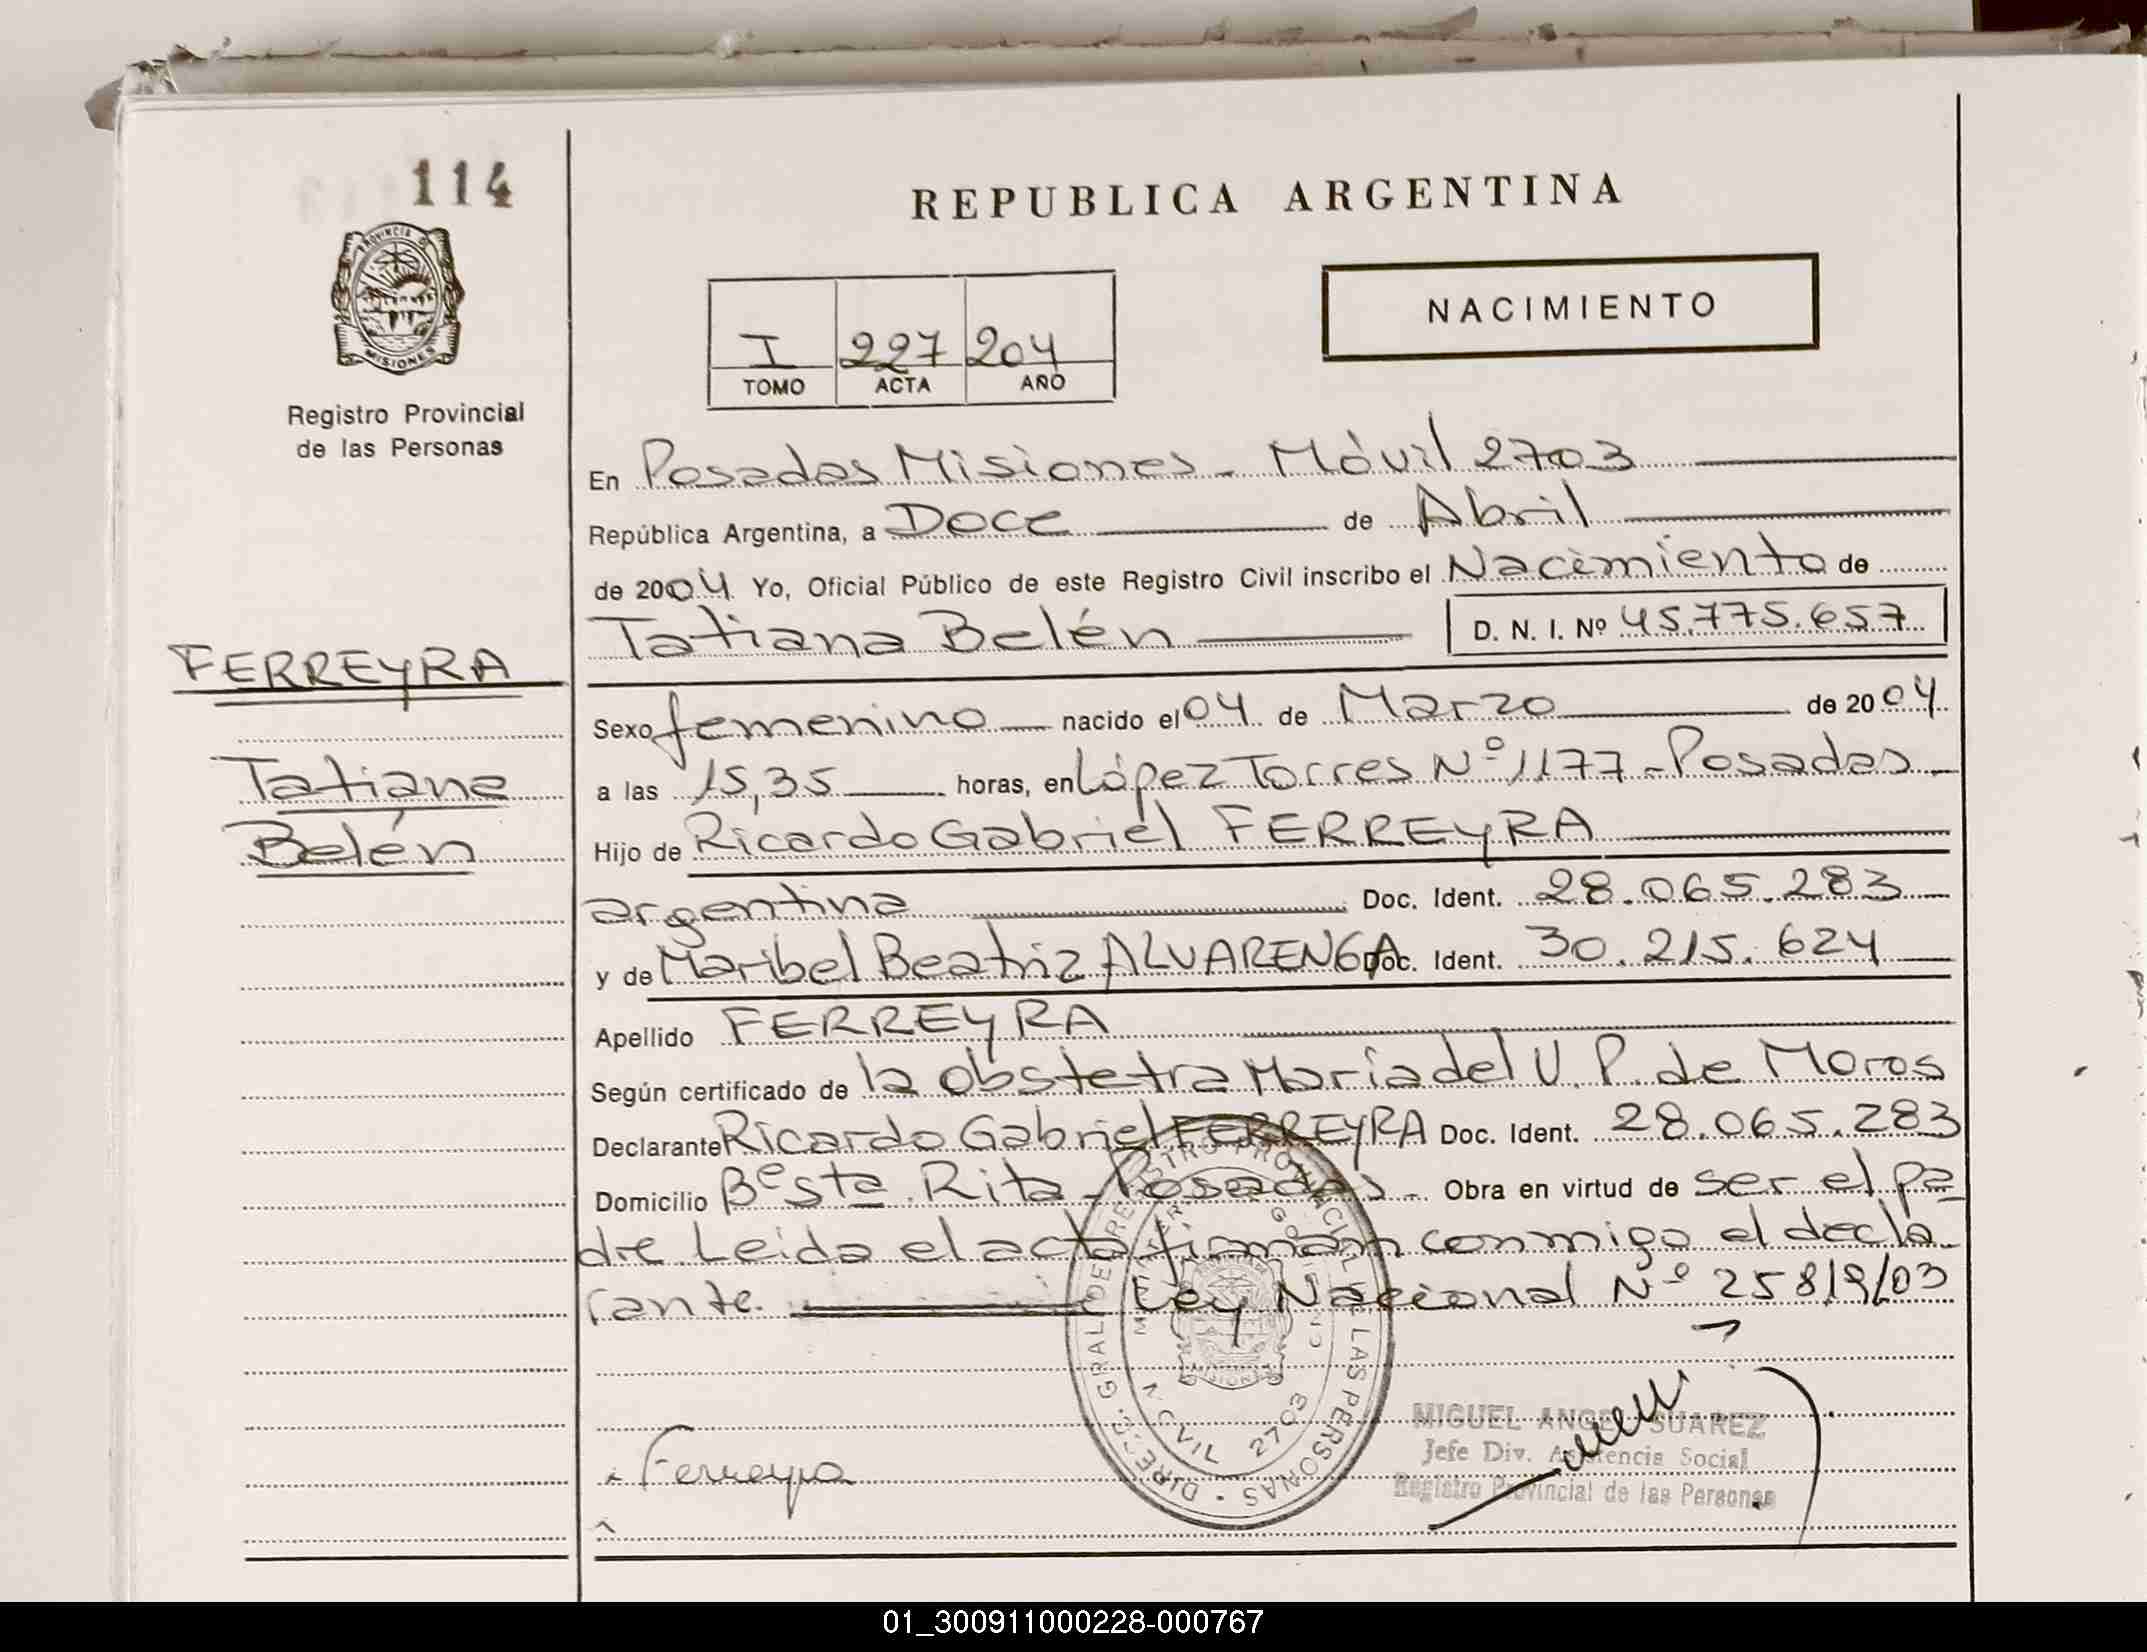 114
REPUBLICA ARGENTINA
PROVINCIA DE
MISIONES
Registro Provincial
de las Personas
NACIMIENTO
I 227 204
TOMO ACTA AÑO
En Posadas Misiones - Móvil 2703
República Argentina, a Doce de Abril
de 2004 Yo, Oficial Público de este Registro Civil inscribo el Nacimiento de
Tatiana Belén D. N. I. Nº 45.775.657
FERREYRA
Tatiana
Belén
Sexo femenino nacido el 04 de Marzo de 2004
a las 15,35 horas, en López Torres Nº 1177 - Posadas
Hijo de Ricardo Gabriel FERREYRA
argentina Doc. Ident. 28.065.283
y de Maribel Beatriz ALVARENGA Doc. Ident. 30.215.624
Apellido FERREYRA
Según certificado de la obstetra María del V. P. de Moros
Declarante Ricardo Gabriel FERREYRA Doc. Ident. 28.065.283
Domicilio Bº Sta. Rita - Posadas - Obra en virtud de ser el pa-
dre Leida el acta firman conmigo el decla-
rante. Ley Nacional Nº 25819/03
Ferreyra
MIGUEL ANGEL SUAREZ
Jefe Div. Asistencia Social
Registro Provincial de las Personas
01_300911000228-000767